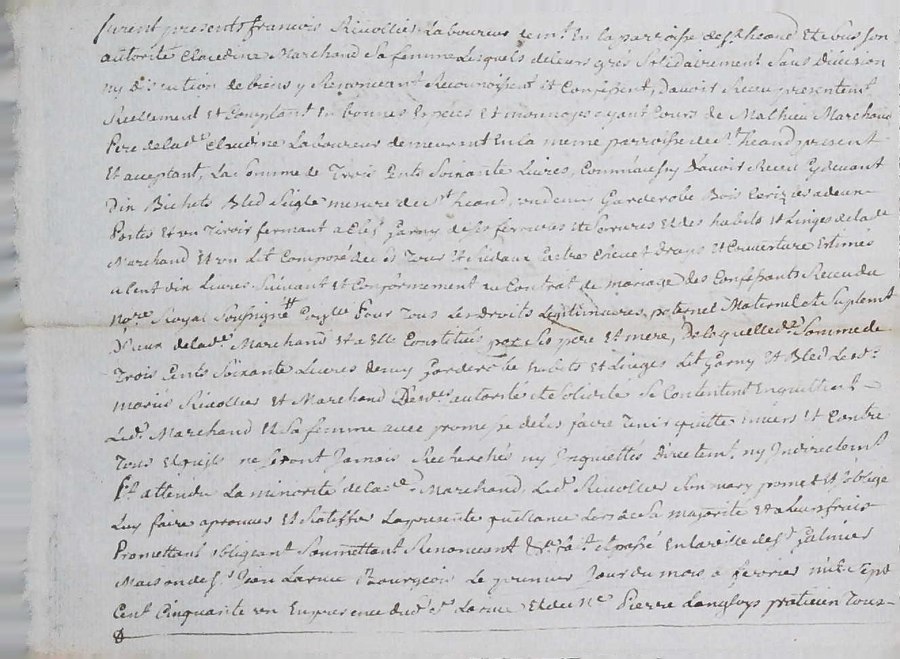 furent presents francois Ricollier Laboureur demt. En la parroisse de St. heand Et de sous son
autorité Claudina Marchand Sa femme Lesquels de leurs gres Solidairement Sans division
ny discution de biens y Renonceant Reconnoissent Et Confessent, D'avoir Receu presentemt.
Reellement Et Comptant En bonnes Especes Et monnoye ayant Cours de Mathieu Marchand
Pere de lade. claudine Laboureur demeurent En la meme parroisse de st. heand present
Et acceptant, La Somme de Trois Cents Soixante Livres, Comme aussy D'avoir Receu Cydevant
Dix Bichets Bled Seigle mesure de st. heand, Garderobe Bois Cerizier a deux
Portes Et un Tiroir fermant a Clef Garny de ses ferrures Et Serrures Et des habits Et Linges de lade.
Marchand Et un Lit Composé de Tour Et Rideaux Draps Et Couverture Estimés
a Cent dix Livres Suivant Et Conformement au Contrat de mariage des Confessants Receu du
Nore. Royal Soussigné Pour Tous Les droits Legitimaires, paternel Maternel Et Suplemt.
D'iceux de lade. Marchand Et a Elle Constitués par Ses pere Et mere, De laquelle de. Somme de
Trois Cents Soixante Livres habits Et Linges Lit Garny Et Bled Lesds.
mariés Ricollier Et Marchand autorité Et Solidité Se Contentent En quittent
Led. Marchand Et Sa femme avec promesse de les faire Tenir quitte Envers Et Contre
Tous Et quils ne Seront Jamais Recherchés ny Inquiettés directemt. ny Indirectemt.
Et attendu La minorité de lade. Marchand, Led. Ricollier Son mary promet Et s'oblige
Luy faire aprouver Et Ratiffier La presente quittance Lors de Sa majorité Et a Leurs frais
Promettant obligeant Soumettant Renonceant &a. fait Et passé En la ville de St. Galmier
Maison de Sr. Jean Larue Bourgeois Le premier Jour du mois fevrier mil Sept
Cent Cinquante un En presence dud. Sr. Larue Et de Me. Pierre Langloys praticien Tous